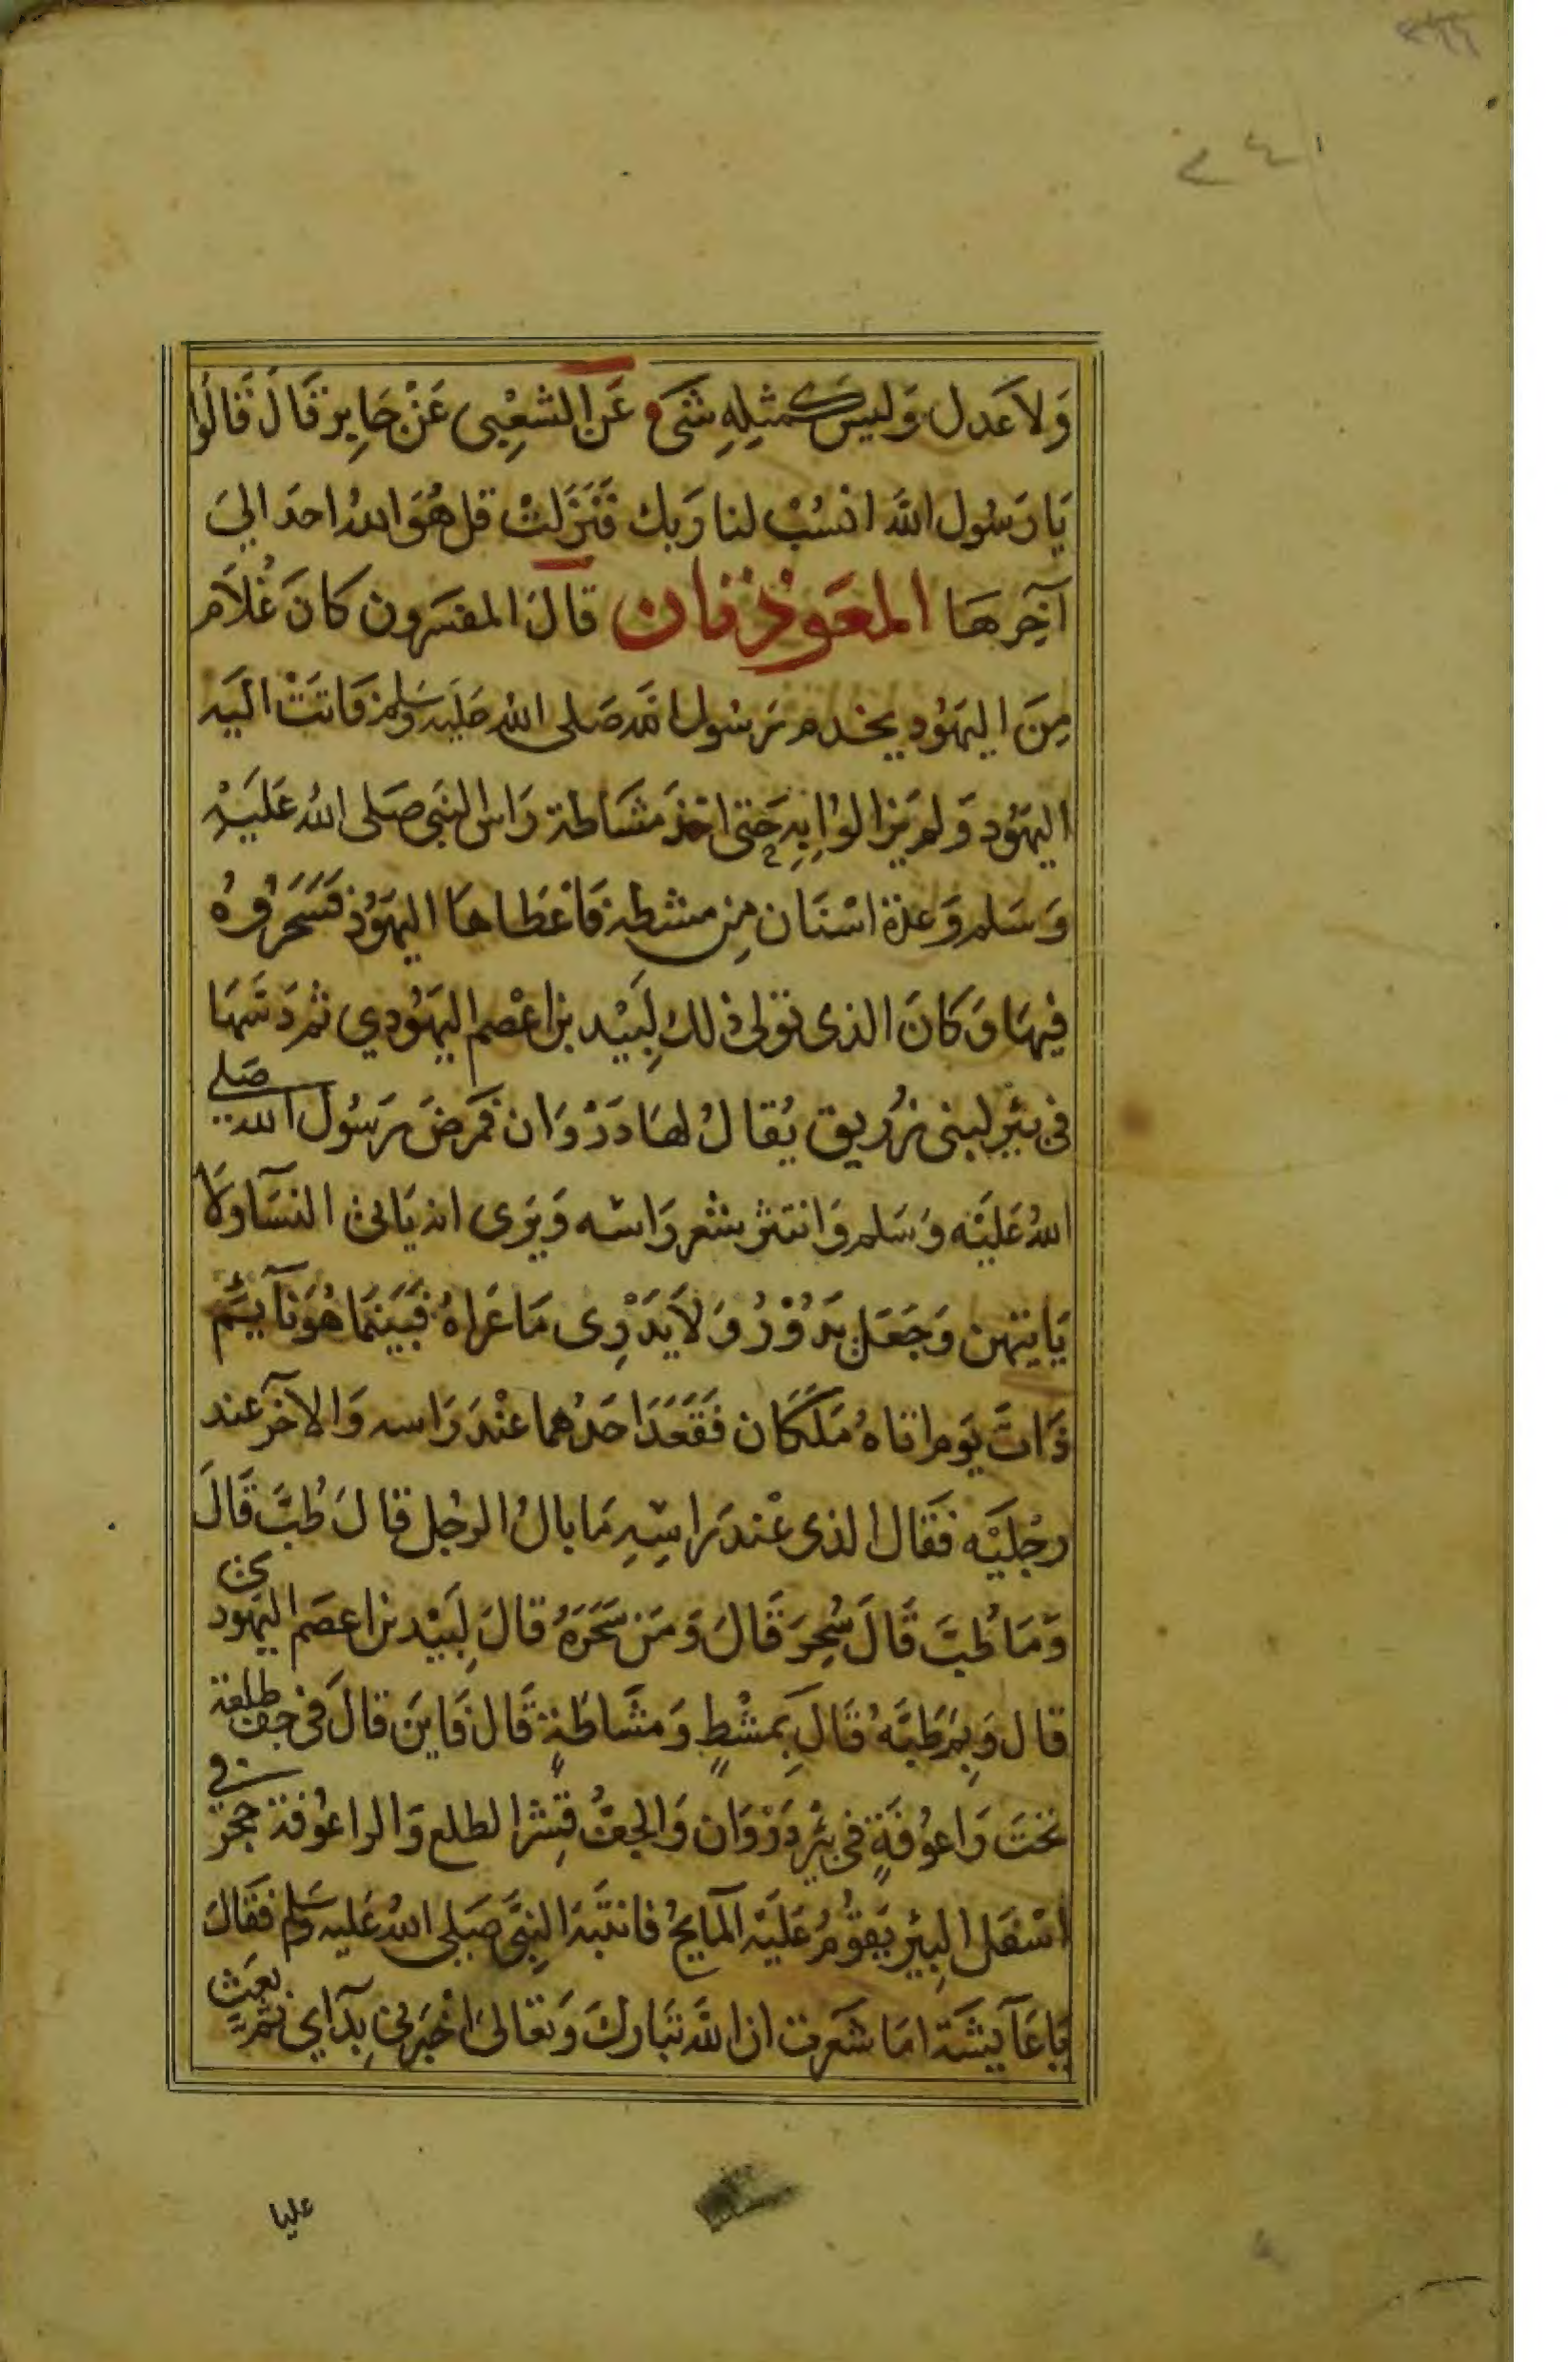 وَلاَ عَدل وَليس كمثلِهِ شَىءٌ عَن الشعْبِى عَنْ جَابِر قَالَ قَالُوا
يَا رَسُول اللَّه انْسُبْ لنا رَبك فَنَزَلتْ قل هُوَ اللهُ احَد الىَ
آخِرهَا المعَوذتان قالَ المفسّرون كانَ غُلاَم
مِنَ اليهَوُدِ يخدم رَسُول الله صَلى اللهُ عَليْه وَسَلم فَاتَتْ اليَه
اليهَوُد وَلم يَزالوْا بِهِ حَتى اخذ مَشَاطة رَاس النبى صَلى اللهُ عَليَهْ
وَسَلم وَعدة اسْنَان مِن مشطه فَاعْطَاهَا اليهَوُد فَسَحَرُوهُ
فيهَا وَكانَ الذى تولى ذلك لَبِيْد بن اعْصم اليهَوُدي ثم دَسَّهَا
فى بئرِ لبنى زُرَيق يُقالُ لهَا دَرْوَان فمَرضَ رَسُول الله صَلى
اللهُ عَليَه وَسَلم وَانتثر شعر رَاسه وَيَرَى انه يَاتى النسَآ وَلا
يَايتهن وَجَعَل يَدُوْرُ وَلاَ يَدْرِى مَا عَرَاهُ فَبَيَنَما هُوَ نَآيِم
ذَاتَ يَوم اتاهُ مَلَكان فَقَعَدَ احَدُهما عنْدَ رَاسه وَالاخَر عند
رجْليَه فَقَال الذى عنْد رَاسِهِ مَا بالُ الرجُل قالَ طُبَّ قَالَ
وَمَا طُبَّ قَالَ سُحِرَ قَالَ وَمَن سَحَرَهُ قالَ لِبَيْد بن اعصَم اليهَودى
قال وَبِمَ طَبَّهُ قَالَ بِمشْطٍ وَمشَاطَةٍ قَالَ فَاينَ قالَ فى جف طلعة
تحَتَ رَاعوُفَةٍ فى بئرِ دَرْوَان وَالجفُّ قِشر الطلع وَالراعُوفة حَجَر فى
اسْفَل البِير يَقوُمُ عَليَه المآيحُ فانتَبَه النِبىَّ صَلى اللهُ عَليه وَسَلم فقَالَ
يَا عَآيشَة امَا شَعَرت ان اللَّه تَبَاركَ وَتعَالىَ اخْبَرَنى بِدَآاي ثم بعَث
عليا